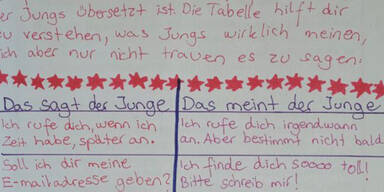 er Jungs übersetzt ist. Die Tabelle hilft dir
zu verstehen, was Jungs wirklich meinen,
ich aber nur nicht trauen es zu sagen.
Das sagt der Junge Das meint der Junge
Ich rufe dich, wenn ich Ich rufe dich irgendwann
Zeit habe, später an. an. Aber bestimmt nicht bald
Soll ich dir meine Ich finde dich soooo toll!
E-mailadresse geben? Bitte schreib mir!